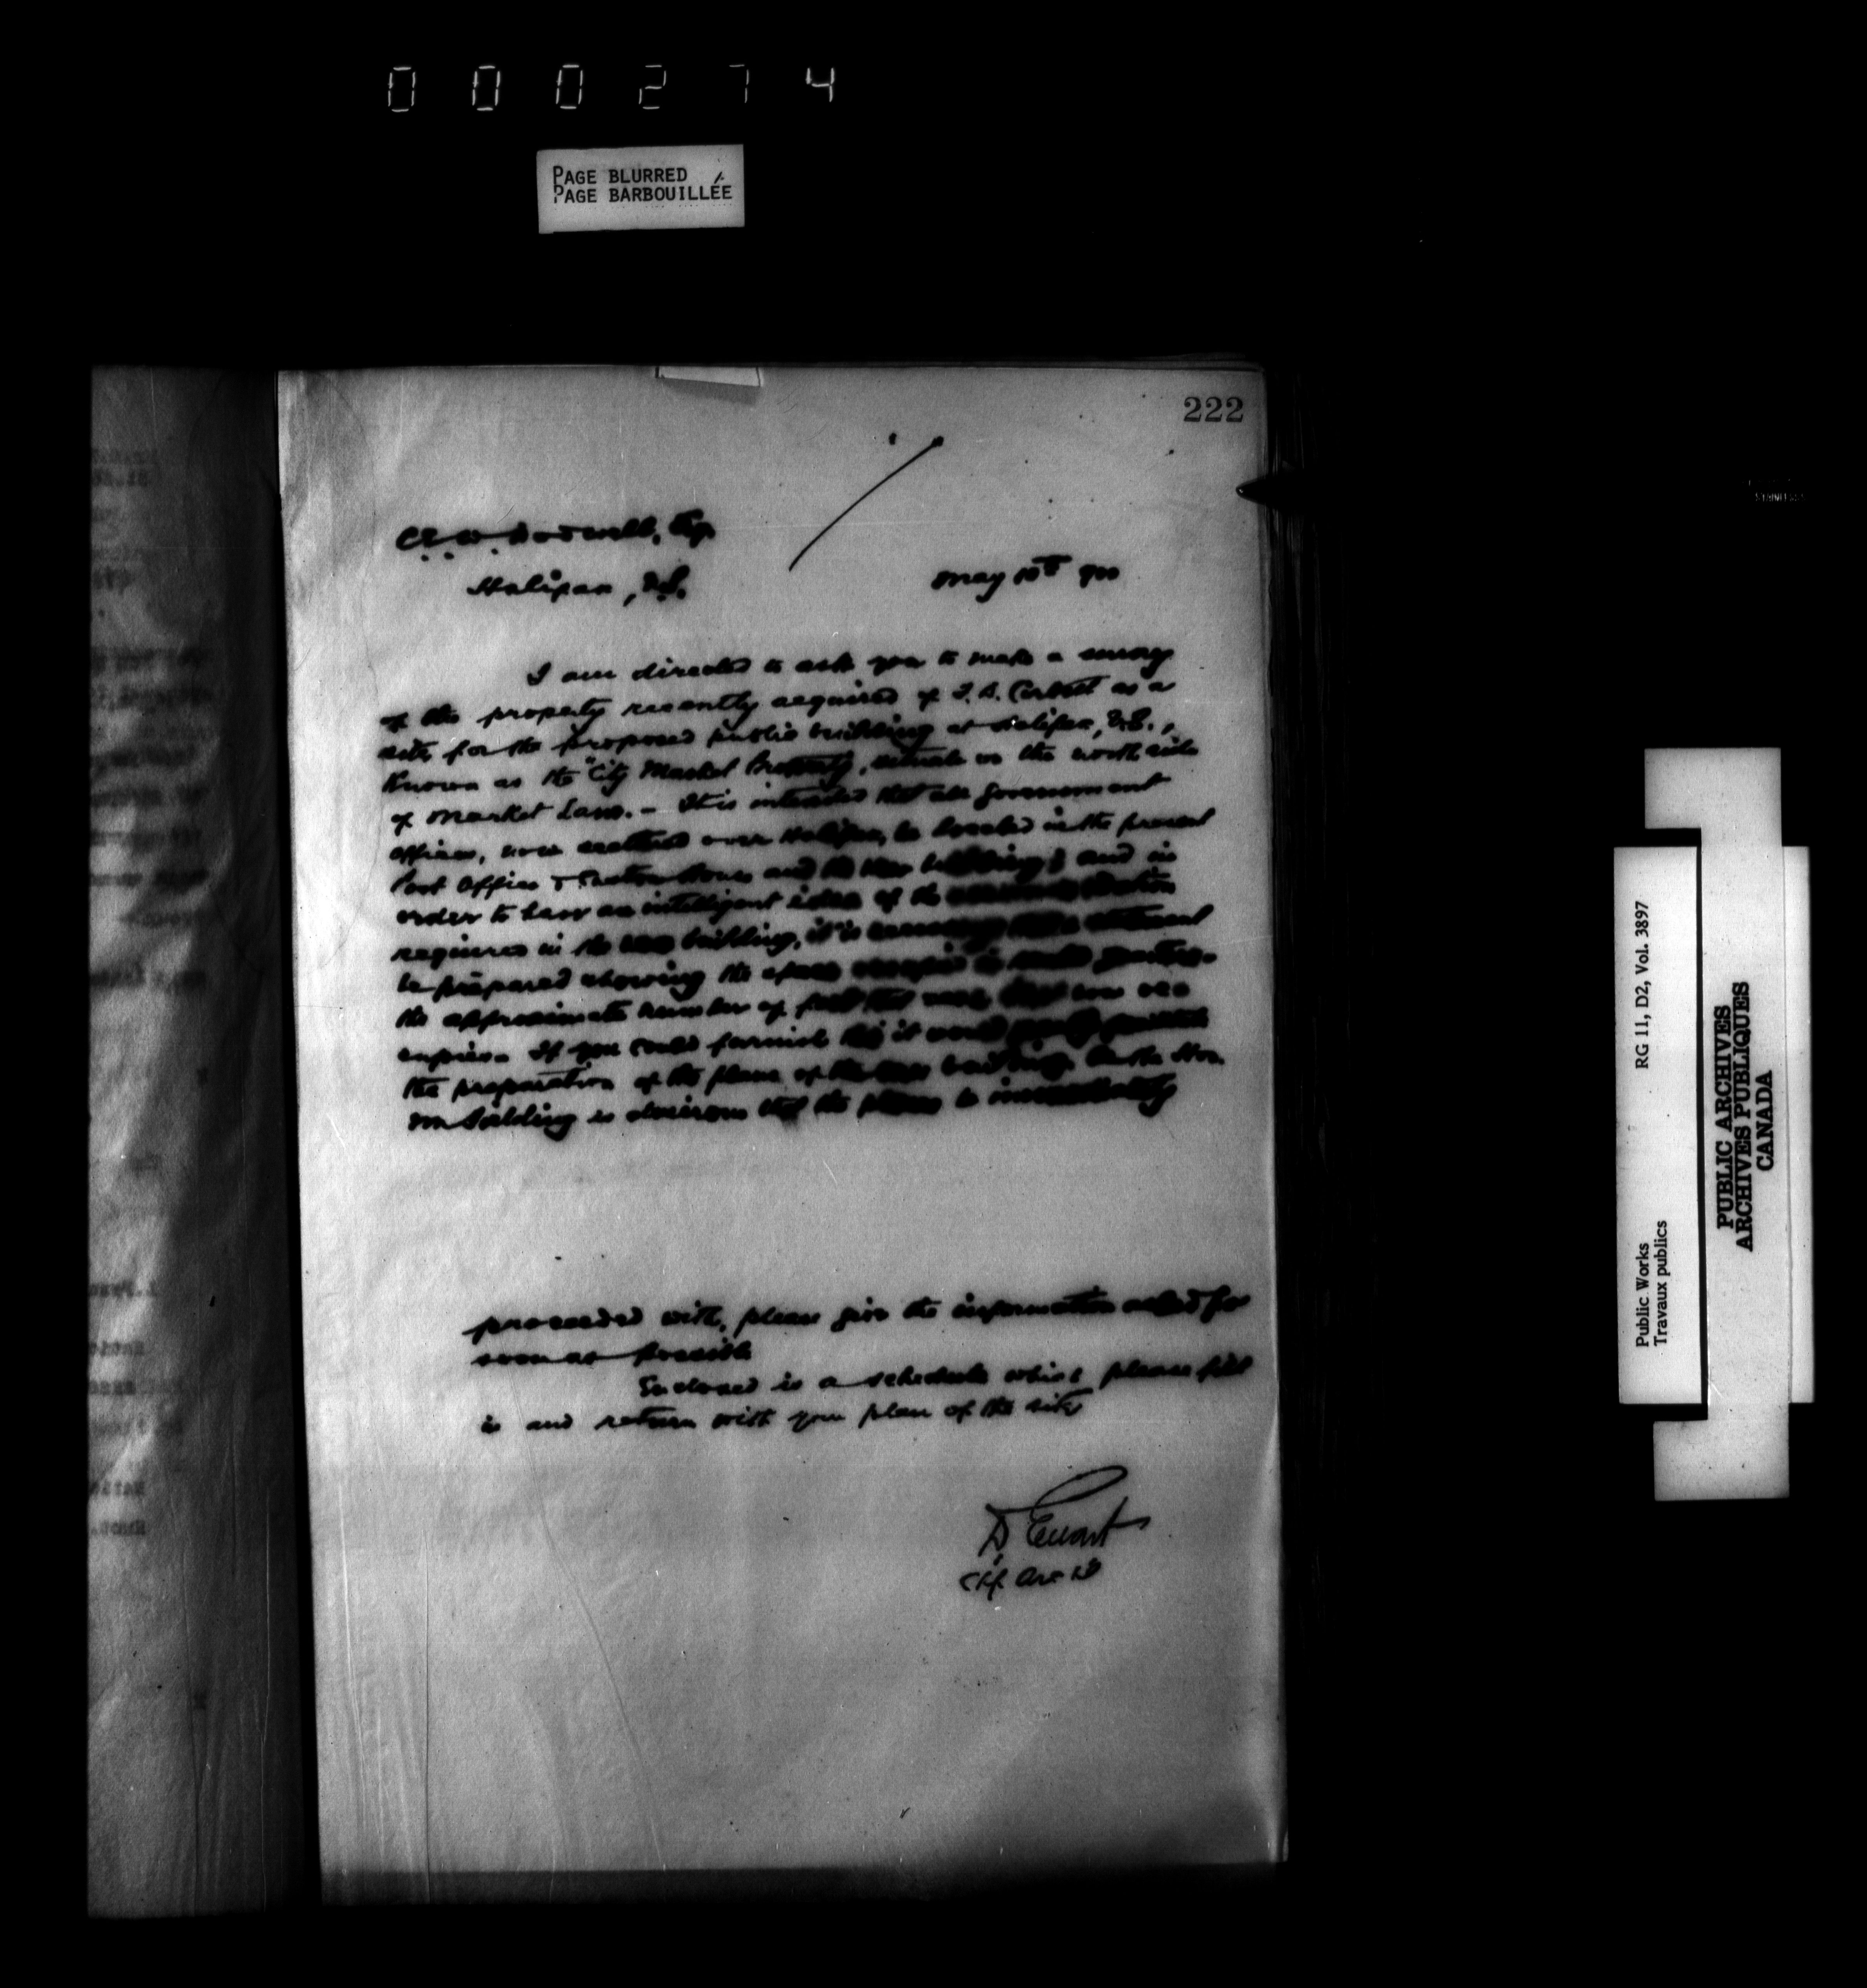 000274
PAGE BLURRED
PAGE BARBOUILLÉE
222
C. E. W. Dodwell, Esq
Halifax, N.S.
May 10th 900
I am directed to ask you to make a survey
of the property recently acquired of as a
site for the proposed public building at Halifax, N.S.,
known as the "City Market Property, situate on the north side
of Market Lane. - It is intended that all government
offices, now scattered over Halifax, be located in the present
Post Office & Custom House and the new building; and in
order to have an intelligent idea of the
required in the new building, it is necessary that a statement
be prepared showing the space occupied in
the approximate number of feet that
If you could furnish this it would
the preparation of the plans of the new building. As the Hon.
Mr Fielding is desirous that the plans be immediately
proceeded with, please give the information asked for
soon as possible
Enclosed is a schedule which please fill
in and return with your plan of the site
D Ewart
Ch. Archt
Public Works
Travaux publics
RG 11, D2, Vol. 3897
PUBLIC ARCHIVES
ARCHIVES PUBLIQUES
CANADA